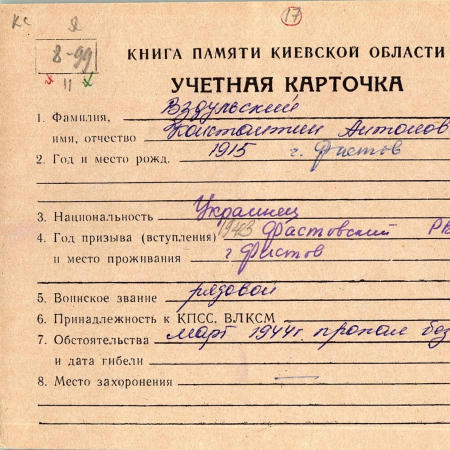 КС Я 17
8-99
х 11 х
КНИГА ПАМЯТИ КИЕВСКОЙ ОБЛАСТИ
УЧЕТНАЯ КАРТОЧКА
1. Фамилия, Вздульский
имя, отчество Константин Антонов
2. Год и место рожд. 1915 г. Фастов
3. Национальность Украинец
4. Год призыва (вступления) 1943 Фастовский РВ
и место проживания г Фастов
5. Воинское звание рядовой
6. Принадлежность к КПСС, ВЛКСМ
7. Обстоятельства март 1944г. пропал без
и дата гибели
8. Место захоронения —